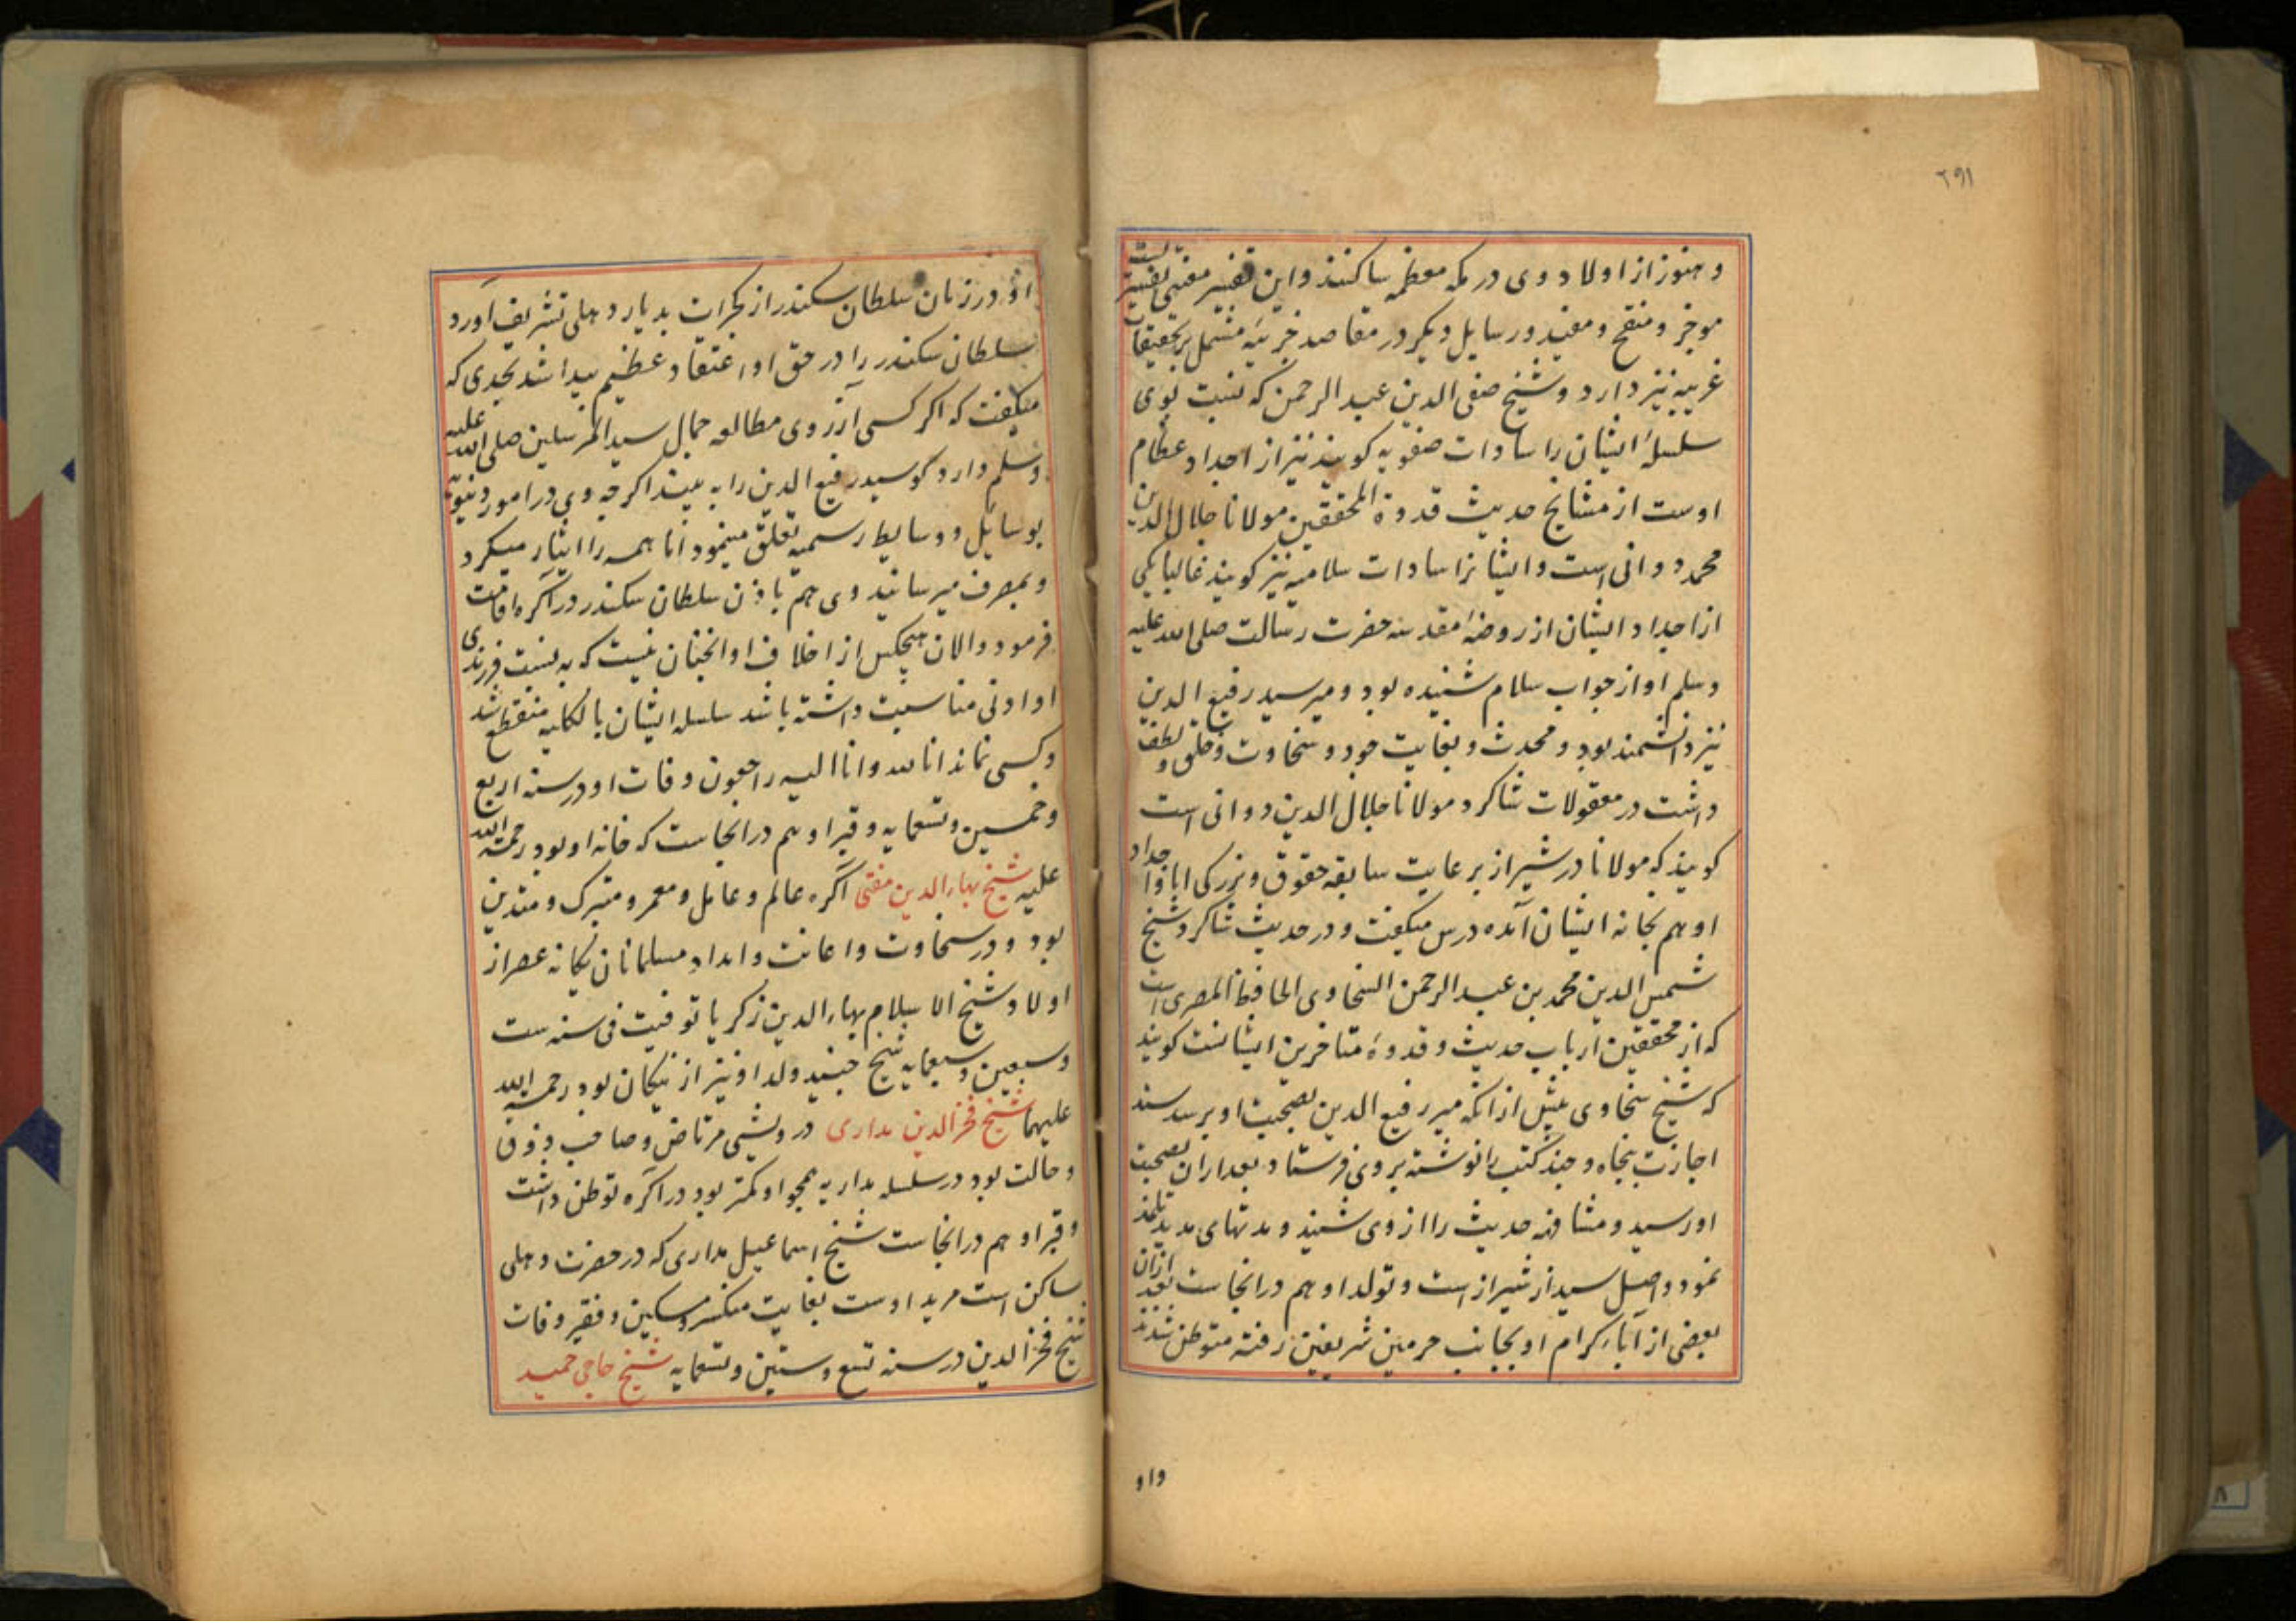 ۲۹۱
و هنوز از اولاد وی در مکه معظمه ساکنند و این تفسیر معینی تفسیریست
موجز و منقح و مفید و رسایل دیکر در مقاصد جزئیه مشتمل بر تحقیقات
غریبه نیز دارد و شیخ صفی الدین عبد الرحمن که نسبت بوی
سلسله ایشان را سادات صفویه کویند نیز از اجداد عظام
اوست از مشایخ حدیث قدوة المحققین مولانا جلال الدین
محمد دوانی است و ایشانرا سادات سلامیه نیز کویند غالبا یکی
از اجداد ایشان از روضهٔ مقدسه حضرت رسالت صلی الله علیه
وسلم اواز جواب سلام شنیده بود و میر سید رفیع الدین
نیز دانشمند بود و محدث و بغایت جود و سخاوت و خلق و لطف
داشت در معقولات شاکرد مولانا جلال الدین دوانی است
کویند که مولانا در شیراز بر عایت سابقه حقوق و بزرکی ابا و اجداد
او هم بخانه ایشان آمده درس میکفت و در حدیث شاکرد شیخ
شمس الدین محمد بن عبد الرحمن السخاوی الحافظ المصری است
که از محققین ارباب حدیث و قدوهٔ متاخرین ایشانست کویند
که شیخ سخاوی پیش از انکه میر رفیع الدین بصحبت او برسد سند
اجازت پنجاه و چند کتب را نوشته بر وی فرستاد بعد ازان بصحبت
او رسید و مشافهه حدیث را از وی شنید و مدتهای مدید تلمذ
نمود و اصل سید از شیراز است و تولد او هم در انجاست بعد ازان
بعضی از آباء کرام او بجانب حرمین شریفین رفته متوطن شدند
واو
او در زمان سلطان سکندر از کجرات بدیار دهلی تشریف آورد
سلطان سکندر را در حق او اعتقاد عظیم پیدا شد بحدی که
میکفت که اکر کسی آرزوی مطالعه جمال سید المرسلین صلی الله علیه
وسلم دارد کو سید رفیع الدین را به بیند اکر چه وی در امور دنیوی
بوسایل و وسایط رسمیه تعلق مینمود اما همه را ایثار میکرد
و بمصرف میرسانید وی هم باذن سلطان سکندر در آکره اقامت
فرمود و الان هیچکس از اخلاف او انچنان نیست که به نسبت فرزندی
او ادنی مناسبت داشته باشد سلسله ایشان بالکلیه منقطع شد
و کسی نماند انا لله وانا الیه راجعون وفات او در سنه اربع
و خمسین و تسعمایه و قبر او هم در انجاست که خانه او بود رحمة الله
علیه شیخ بهاء الدین مفتی آکره عالم و عامل و معمر و متبرک و متدین
بود و در سخاوت و اعانت و امداد مسلمانان یکانه عصر از
اولاد شیخ الاسلام بهاء الدین زکریا توفیت فی سنه ست
و سبعین و سبعمایه شیخ جنید ولد او نیز از نیکان بود رحمة الله
علیهما شیخ فخر الدین مداری درویشی مرتاض و صاحب ذوق
و حالت بود در سلسله مداریه همچو او کمتر بود در آکره توطن داشت
و قبر او هم در انجاست شیخ اسماعیل مداری که در حضرت دهلی
ساکن است مرید اوست بغایت منکسر و مسکین و فقیر وفات
شیخ فخر الدین در سنه تسع و ستین و تسعمایه شیخ حاجی حمید